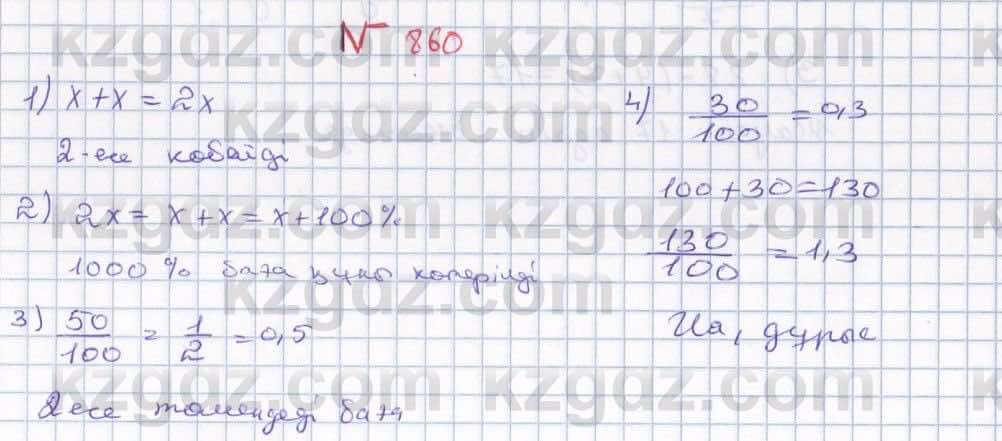 № 860
1) x + x = 2x
2-есе кобайді
2) 2x = x + x = x + 100%
1000 % баға құны көтерілді
3) 50/100 = 1/2 = 0,5
2 есе төмендеді баға
4) 30/100 = 0,3
100 + 30 = 130
130/100 = 1,3
Иа, дұрыс
kzgdz.com